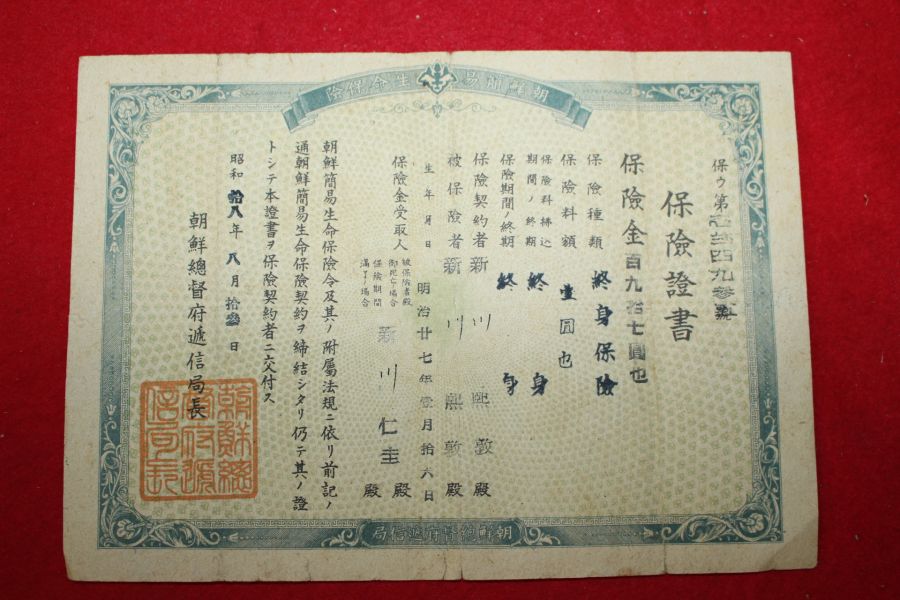 朝鮮簡易生命保險
保ウ第壹貳四九參貳號
保險證書
保險金百九拾七圓也
保險種類 終身保險
保險料額 壹圓也
保險料拂込期間ノ終期 終身
保險期間ノ終期 終身
保險契約者 新川熙敦殿
被保險者 新川熙敦殿
生年月日 明治廿七年壹月拾六日
保險金受取人
被保險者殿
御死亡場合 新川仁圭殿
保險期間
滿了場合 殿
朝鮮簡易生命保險令及其ノ附屬法規ニ依リ前記ノ
通朝鮮簡易生命保險契約ヲ締結シタリ仍テ其ノ證
トシテ本證書ヲ保險契約者ニ交付ス
昭和拾八年八月拾參日
朝鮮總督府遞信局長
朝鮮總督府遞信局長
朝鮮總督府遞信局